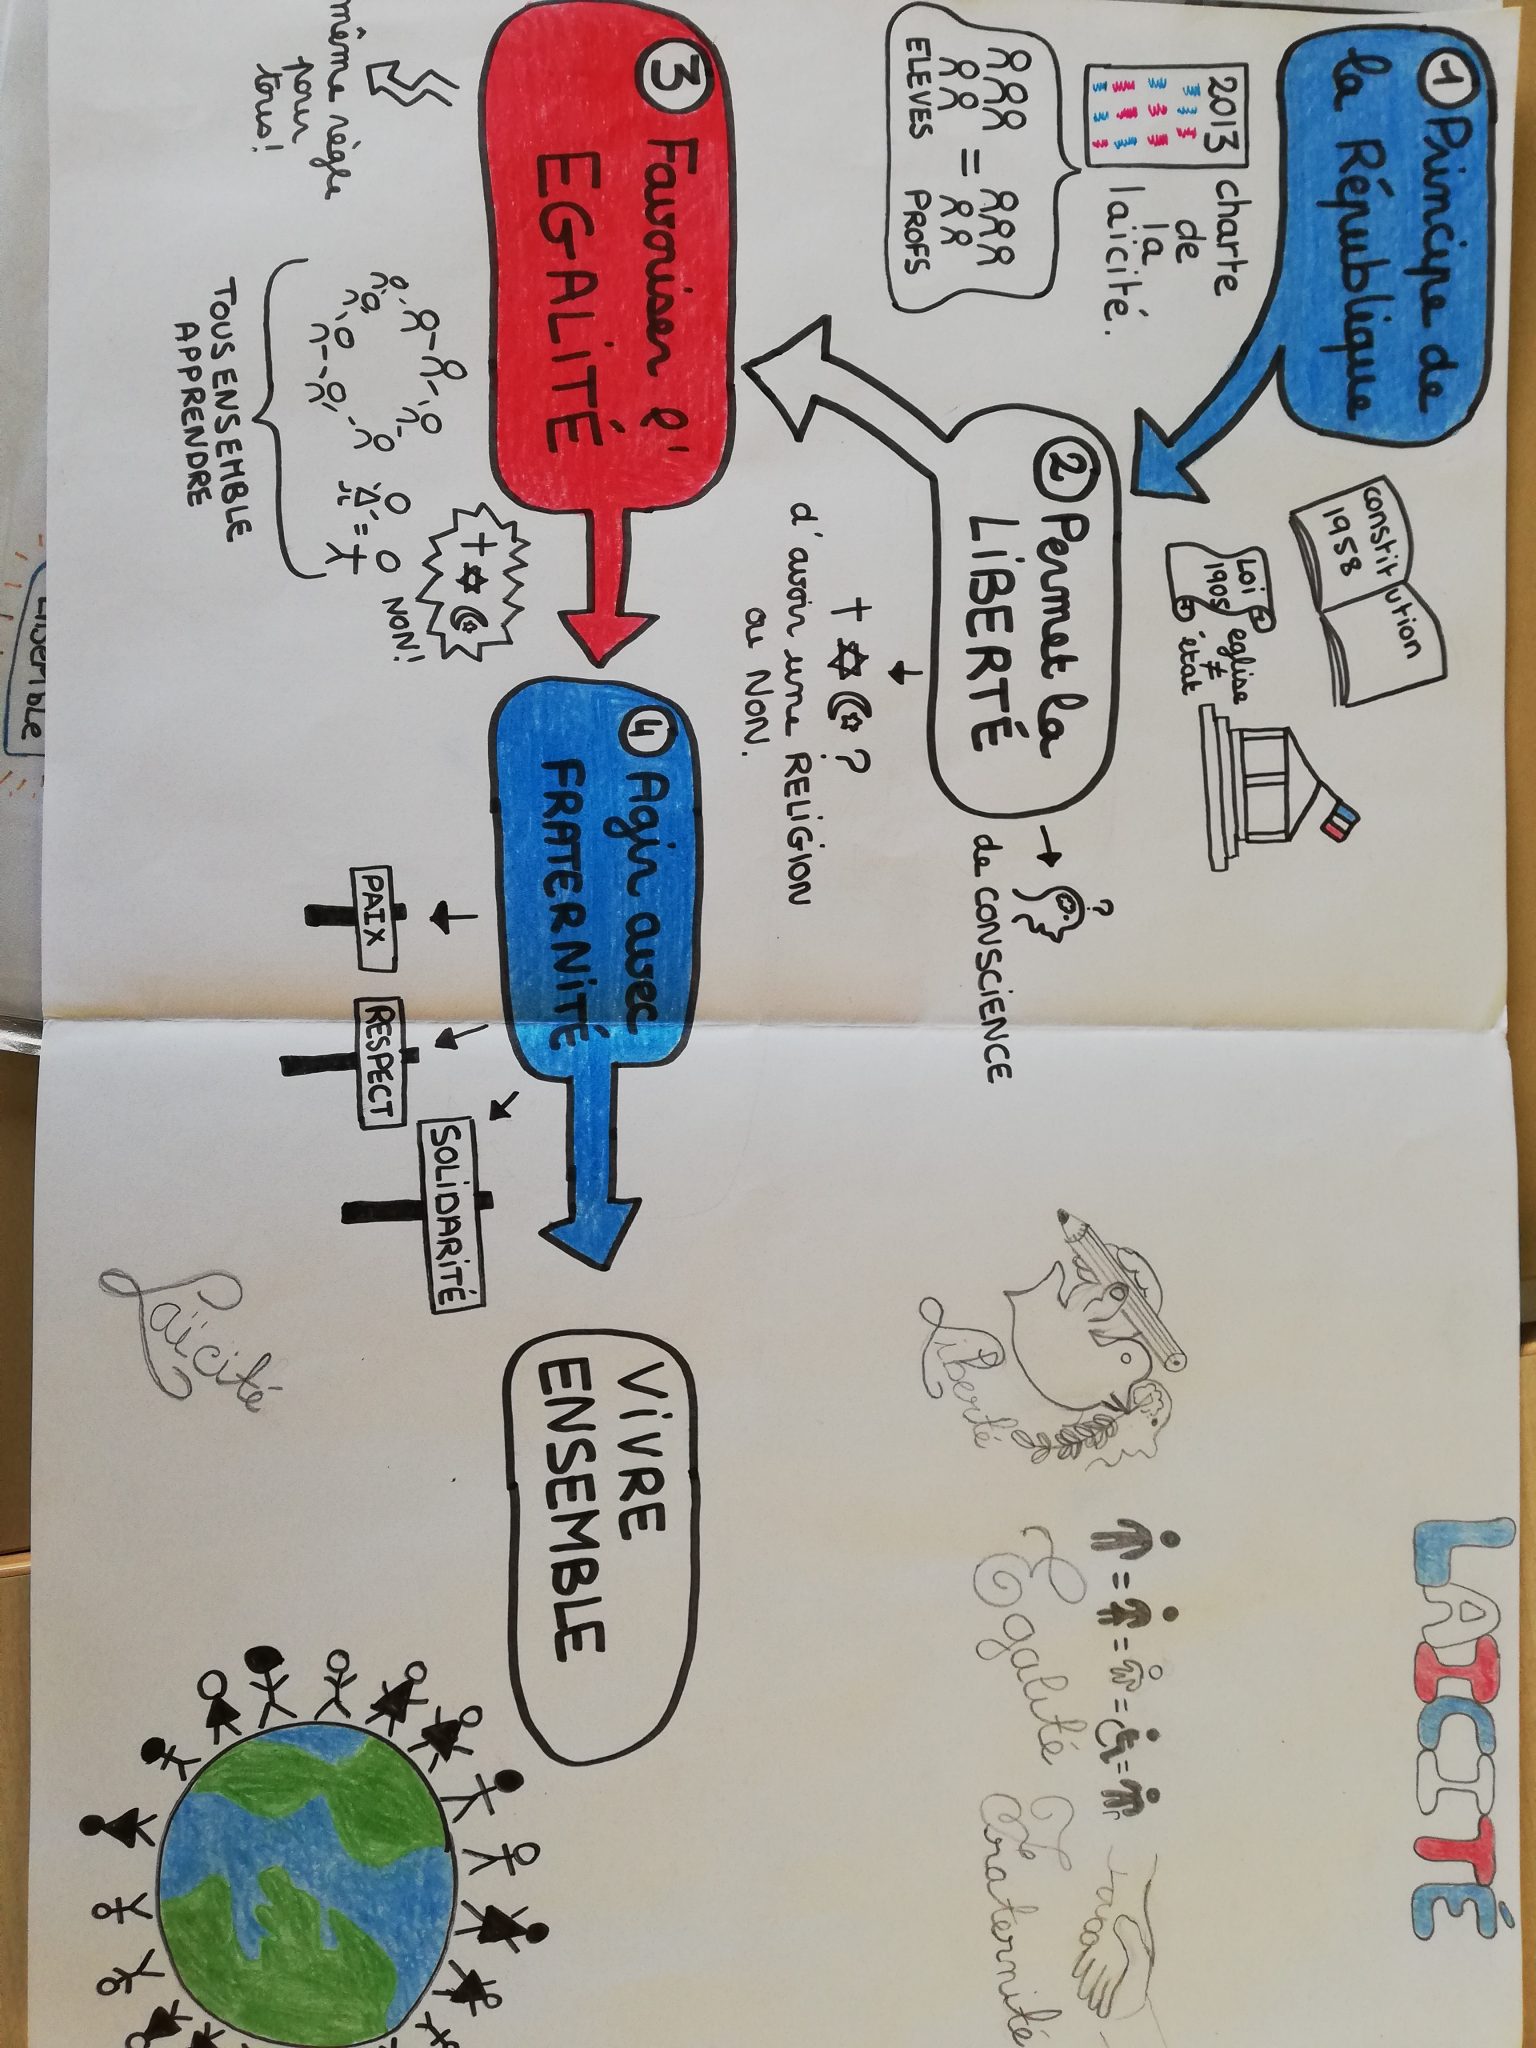 ① Principe de
la République
constitution
1958
Loi
1905
église
≠
état
2013
charte
de
la
laïcité.
=
ELEVES
PROFS
② Permet la
LIBERTÉ
?
de CONSCIENCE
?
d'avoir une RELIGION
ou NON.
③ Favoriser l'
EGALITÉ
même règle
pour
tous!
NON!
=
TOUS ENSEMBLE
APPRENDRE
④ Agir avec
FRATERNITÉ
PAIX
RESPECT
SOLIDARITÉ
VIVRE
ENSEMBLE
Laïcité
LAICITÉ
Liberté
= = = =
Egalité
Fraternité